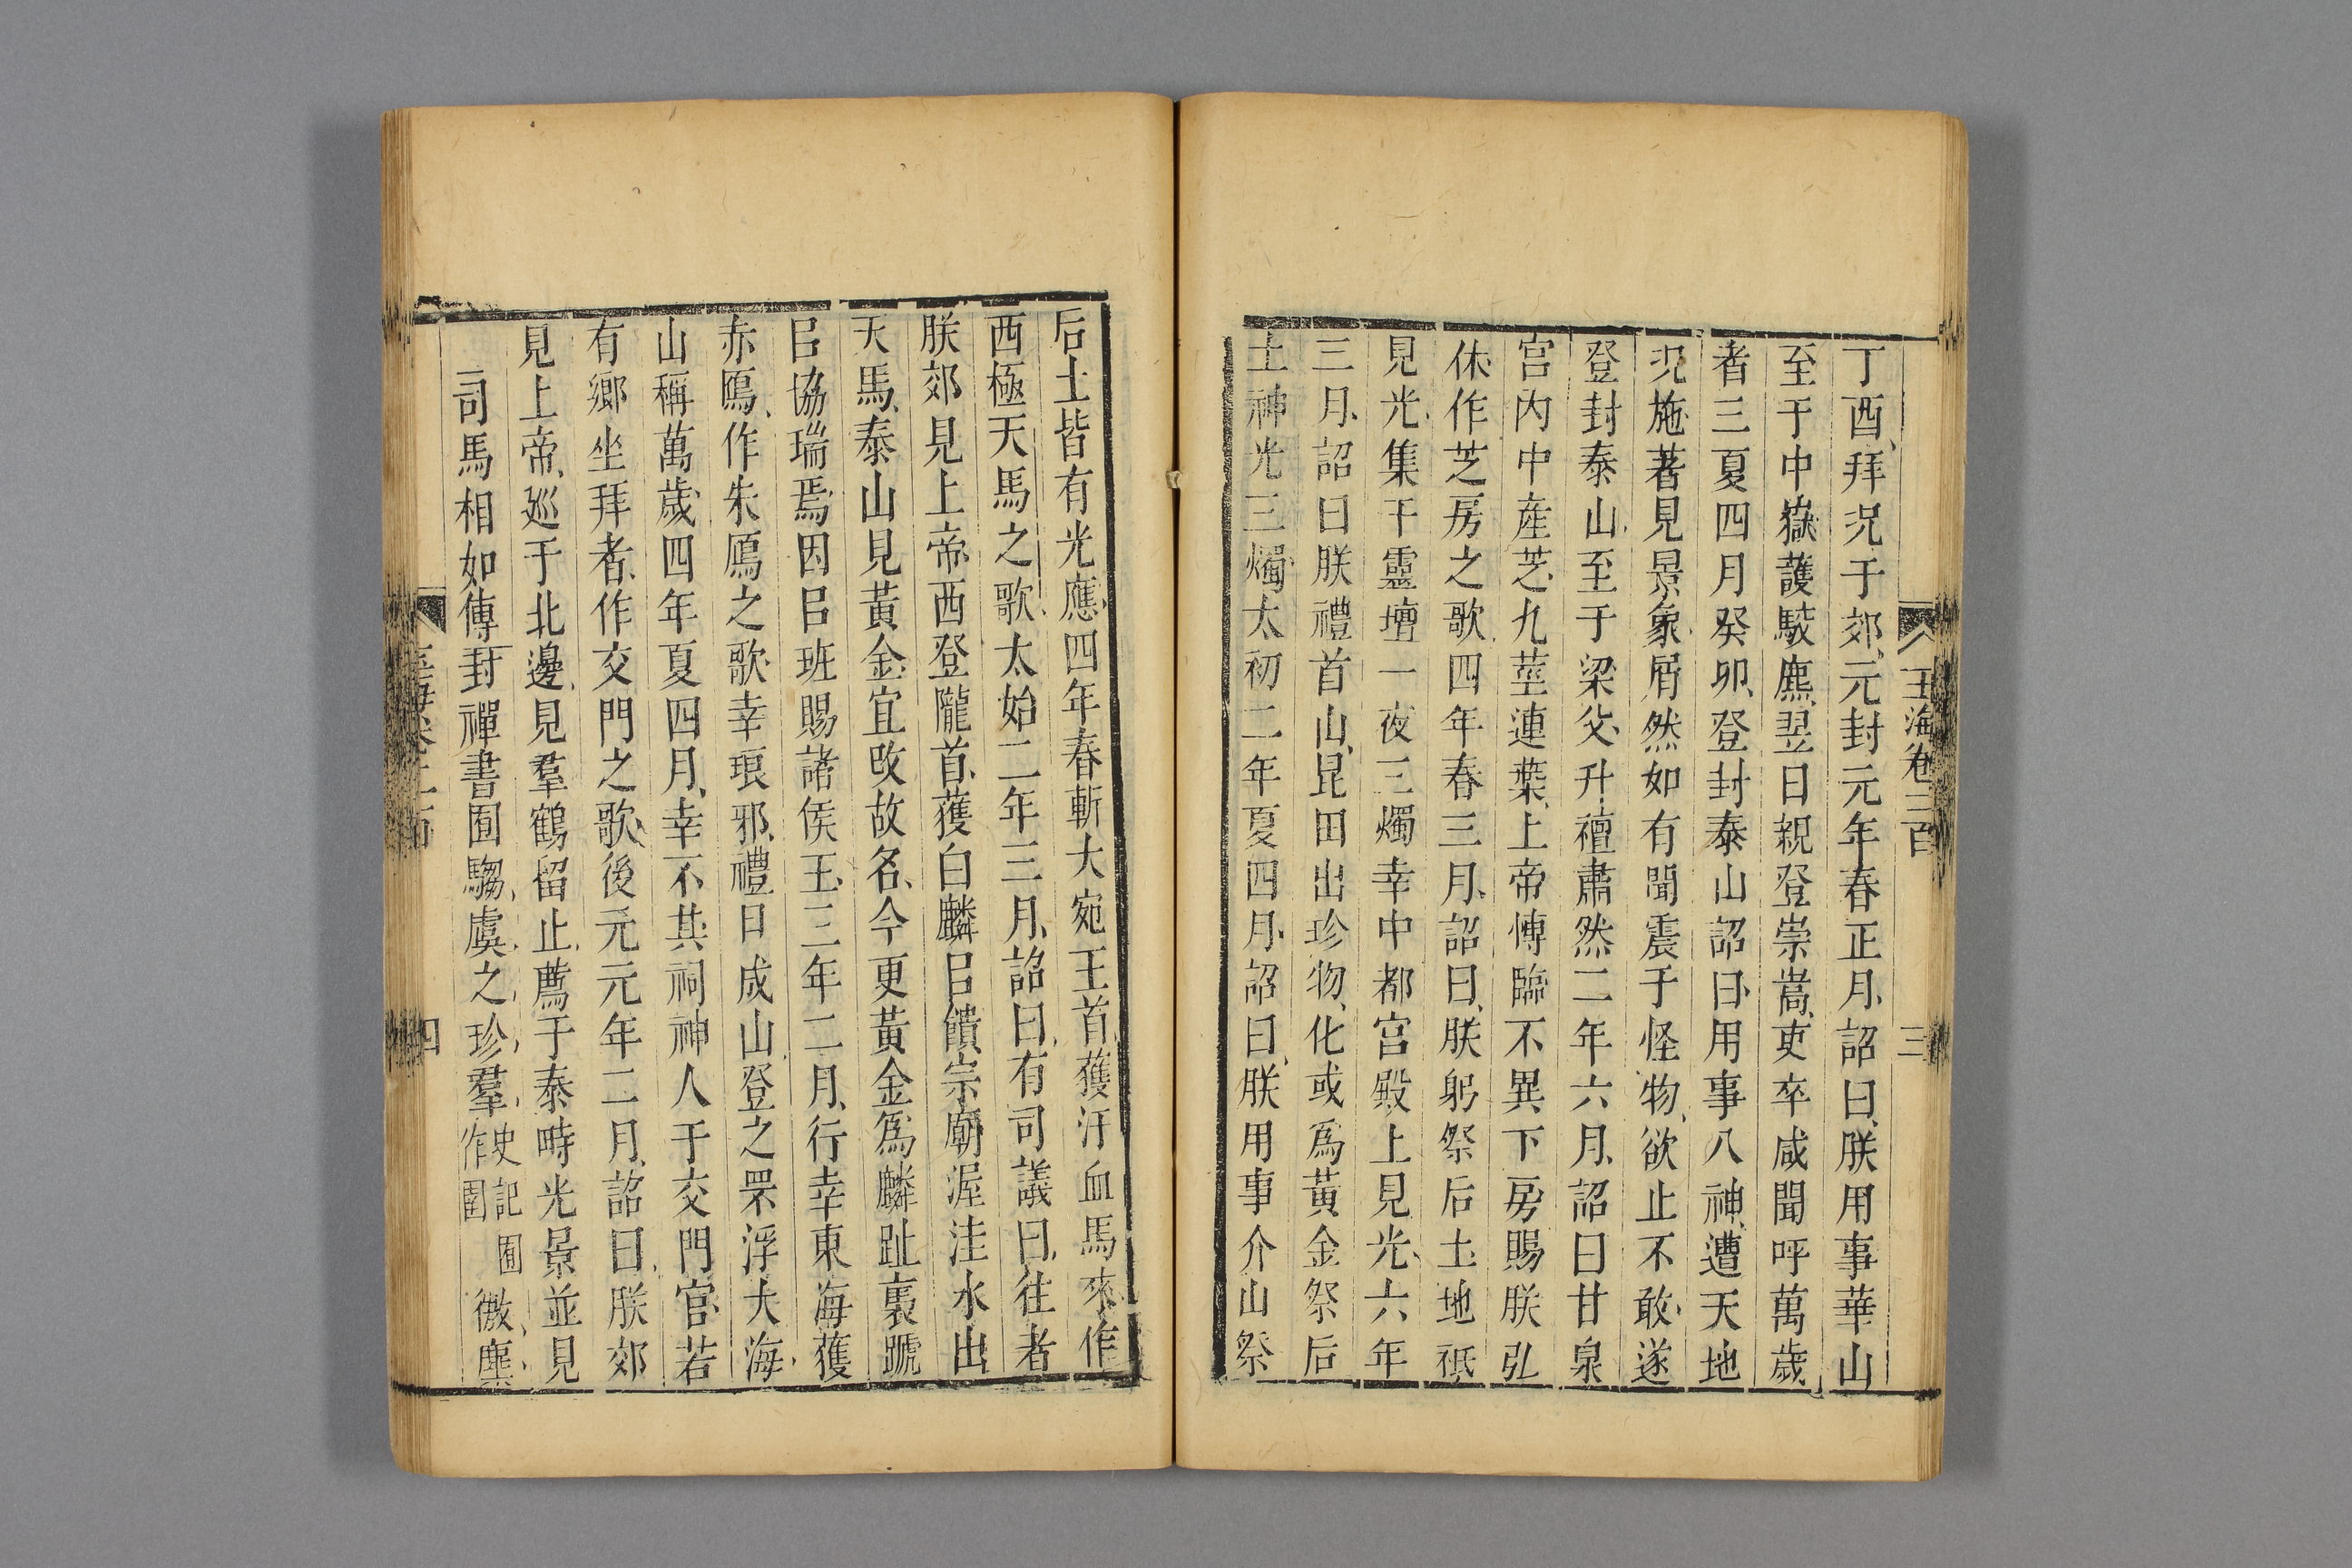 玉海卷二百
三
丁酉拜況于郊元封元年春正月詔曰朕用事華山
至于中嶽護駮麃翌日親登崇嵩吏卒咸聞呼萬歲
者三夏四月癸卯登封泰山詔曰用事八神遭天地
況施著見景象屑然如有聞震于怪物欲止不敢遂
登封泰山至于梁父升禮肅然二年六月詔曰甘泉
宮內中產芝九莖連葉上帝慱臨不異下房賜朕弘
休作芝房之歌四年春三月詔曰朕躬祭后土地祇
見光集于靈壇一夜三燭幸中都宮殿上見光六年
三月詔曰朕禮首山昆田出珍物化或爲黃金祭后
土神光三燭太初二年夏四月詔曰朕用事介山祭
后土皆有光應四年春斬大宛王首獲汗血馬來作
西極天馬之歌太始二年三月詔曰有司議曰往者
朕郊見上帝西登隴首獲白麟㠯饋宗廟渥洼水出
天馬泰山見黃金宜改故名今更黃金爲麟趾褭蹏
㠯協瑞焉因㠯班賜諸侯王三年二月行幸東海獲
赤鴈作朱鴈之歌幸琅邪禮日成山登之罘浮大海
山稱萬歲四年夏四月幸不其祠神人于交門宮若
有鄉坐拜者作交門之歌後元元年二月詔曰朕郊
見上帝巡于北邊見羣鶴留止薦于泰畤光景並見
司馬相如傳封禪書囿騶虞之珍羣史記囿作圉徼麋
四